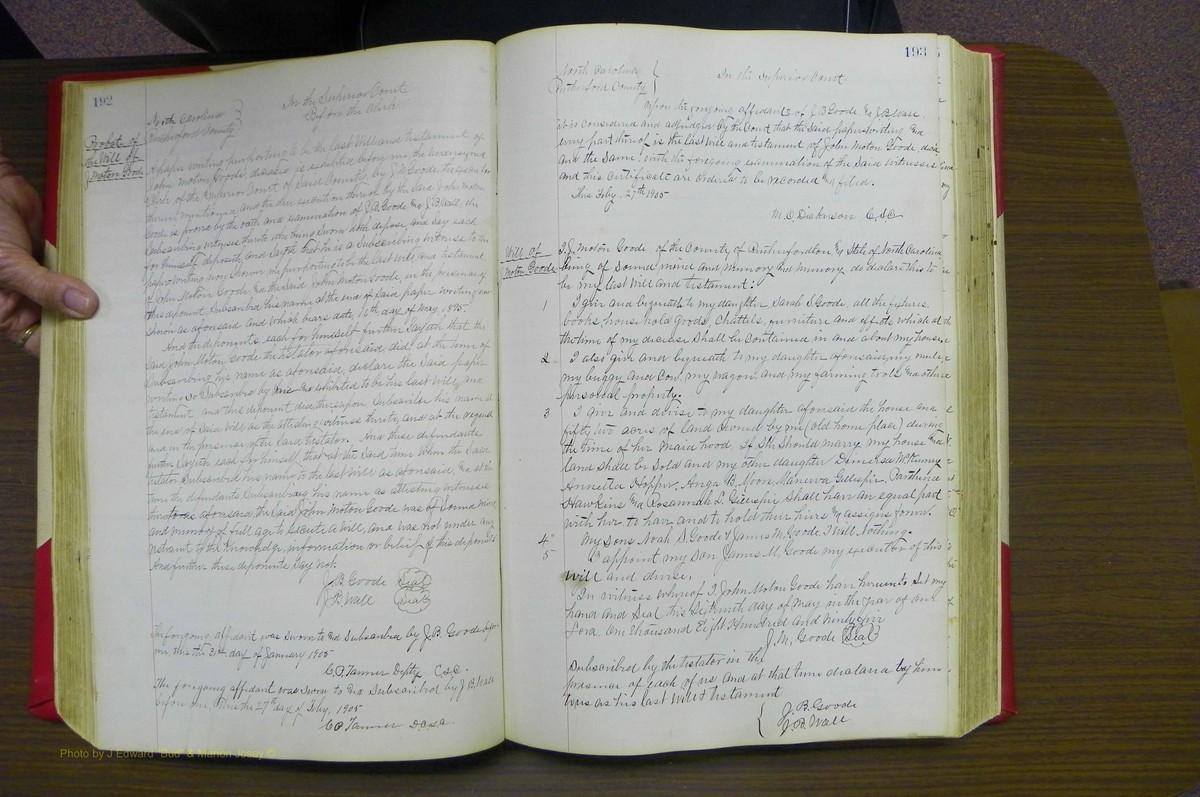 192
North Carolina
Rutherford County
In the Superior Court
Before the Clerk
Probat of
the Will of
J Moton Goode
A paper writing purporting to be the last Will and testament of
John Moton Goode, deceased is exhibited before me, the undersigned
Clerk of the Superior Court of said County, by J M Goode the executor
therein mentioned, and the due execution thereof by the said John Moton
Goode is proven by the oath and examination of J B Goode & J B Wall, the
subscribing witnesses thereto who being sworn doth depose, and say each
for himself deposeth and saith that he is a subscribing witness to the
paper writing now shown me purporting to be the last Will and testament
of John Moton Goode, and the said John Moton Goode, in the presence of
this deponent, subscribed his name at the end of said paper writing now
shown as aforesaid and which bears date 16th day of May 1895.
And the deponents, each for himself further sayeth that the
said John Moton Goode the testator aforesaid, did at the time of
subscribing his name as aforesaid, declare the said paper
writing so subscribed by him and exhibited to be his last Will, and
testament and this deponent did thereupon subscribe his name at
the end of said Will as the attesting witness thereto, and at the request
and in the presence of the said testator. And these defendants
further sayeth each for himself, that at the said time when the said
testator subscribed his name to the last Will as aforesaid, and at the
time the defendants subscribing his name as attesting witnesses
thereto as aforesaid the said John Moton Goode was of sound mind
and memory of full age to execute a Will, and was not under any
restraint to the knowledge, information or belief of this deponents
And further these deponents say not.
J B Goode Seal
J B Wall Seal
The forgoing affidavit was sworn to and subscribed by J. B. Goode before
me this the 31st day of January 1905
C D Tanner Dpty C S C
The foregoing affidavit was sworn to and subscribed by J B Wall
before me, this the 27th day of Feby, 1905
C D Tanner D.C.S.C.
193
North Carolina
Rutherford County
In the Superior Court
Upon the forgoing affidavits of J B Goode & J B Wall
it is considered and adjudged by the Court that the said paper writing and
every part thereof is the last Will and testament of John Moton Goode decd
and the same with the foregoing examination of the said witnesses
and this certificate are ordered to be recorded & filed.
This Feby. 27th 1905
M. O. Dickerson C S C
Will of
Moton Goode
I J. Moton Goode of the County of Rutherfordton & State of North Carolina
being of sound mind and memory and memory do declare this to
be my last Will and testament:
1 I give and bequeath to my daughter Sarah S. Goode, all the
books, house hold Goods, Chattels, furniture and effects which at
the time of my decease shall be contained in and about my house
2 I also give and bequeath to my daughter aforesaid my mule
my buggy and Cow, my wagon, and my farming tools and other
personal property.
3 I give and devise to my daughter aforesaid the house and
fifty two acres of land owned by me (old home place) during
the time of her maid hood. If she should marry my house and
land shall be sold and my other daughter McKinney
Annetta Hopper, B. Moore Manerva Gillespie,
Hawkins and Rosannah L. Gillespie shall have an equal part
with her to have and to hold their heirs & assigns forever.
4" My sons Noah S Goode & James M Goode I Will Nothing.
5 I appoint my son James M. Goode my executor of this
Will and devise.
In witness whereof I, John Moton Goode have hereunto set my
hand and Seal this Sixteenth day of May in the year of our
Lord one thousand Eight Hundred and Ninety five
J. M. Goode Seal
Subscribed by the testator in the
presence of each of us and at that time declared by him
to us as his last Will & testament
J. B. Goode
J. B. Wall
Photo by J Edward "Bud" & Marion Josey ©